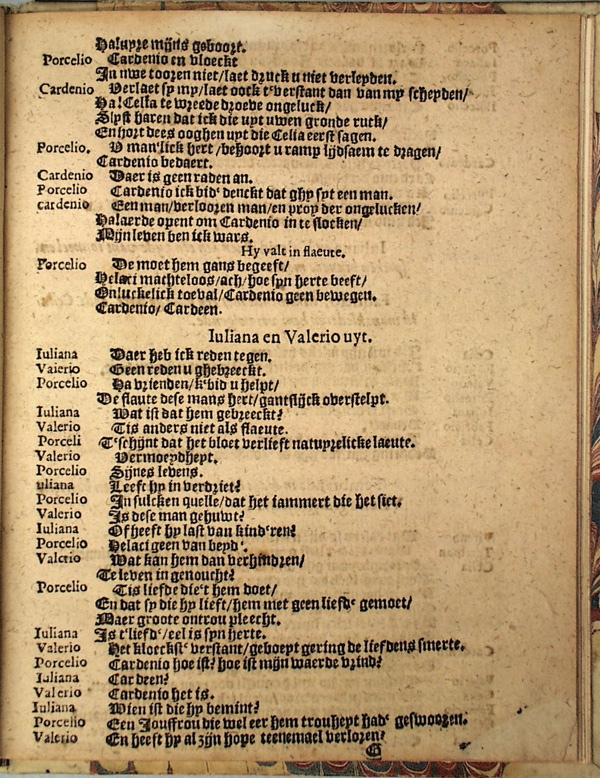 Natupre mijns geboort.
Porcelio Cardenio en vloeckt
In uwe tooren niet/laet druck u niet verleyden.
Cardenio Verlaet sy my/laet oock t'verstant dan van my scheyden/
Ha! Celia te wreede droeve ongeluck/
Slyst haren dat ick die uyt uwen gronde ruck/
En hort dees ooghen uyt die Celia eerst sagen.
Porcelio. V man'lick hert/behoort u ramp lijdsaem te dragen/
Cardenio bedaert.
Cardenio Daer is geen raden an.
Porcelio Cardenio ick bid' denckt dat ghy syt een man.
cardenio Een man/verlooren man/en proy der ongelucken/
Halaerde opent om Cardenio in te slocken/
Mijn leven ben ick wars.
Hy valt in flaeute.
Porcelio De moet hem gans begeeft/
Helaci machteloos/ach/hoe syn herte beeft/
Onluckelick toeval/Cardenio geen bewegen.
Cardenio/Cardeen.
Iuliana en Valerio uyt.
Iuliana Daer heb ick reden tegen.
Vaierio Geen reden u ghebreeckt.
Porcelio Ha vrienden/k'bid u helpt/
De flaute dese mans hert/gantslijck overstelpt.
Iuliana Wat ist dat hem gebreeckt?
Valerio Tis anders niet als flaeute.
Porceli T'schijnt dat het bloet verlieft natuyrelicke laeute.
Valerio Vermoeydheyt.
Porcelio Sijnes levens.
uliana Leeft hy in verdriet?
Porcelio In sulcken quelle/dat het iammert die het siet.
Valerio Is dese man gehuwt?
Iuliana Of heeft hy last van kind'ren?
Porcelio Helaci geen van beyd'.
Valerio Wat kan hem dan verhindren/
Te leven in genoucht?
Porcelio Tis liefde die't hem doet/
En dat sy die hy lieft/hem met geen liefd' gemoet/
Maer groote ontrou pleecht.
Iuliana Is t'liefd'/eel is syn herte.
Valerio Het kloeckst' verstant/geboeyt gering de liefdens smerte.
Porcelio Cardenio hoe ist? hoe ist mijn waerde vrind?
Iuliana Cardeen?
Valerio Cardenio het is.
Iuliana Wien ist die hy bemint?
Porcelio Een Jouffrou die wel eer hem trouheyt had' geswooren.
Valerio En heeft hy al zijn hope teenemael verloren?
G